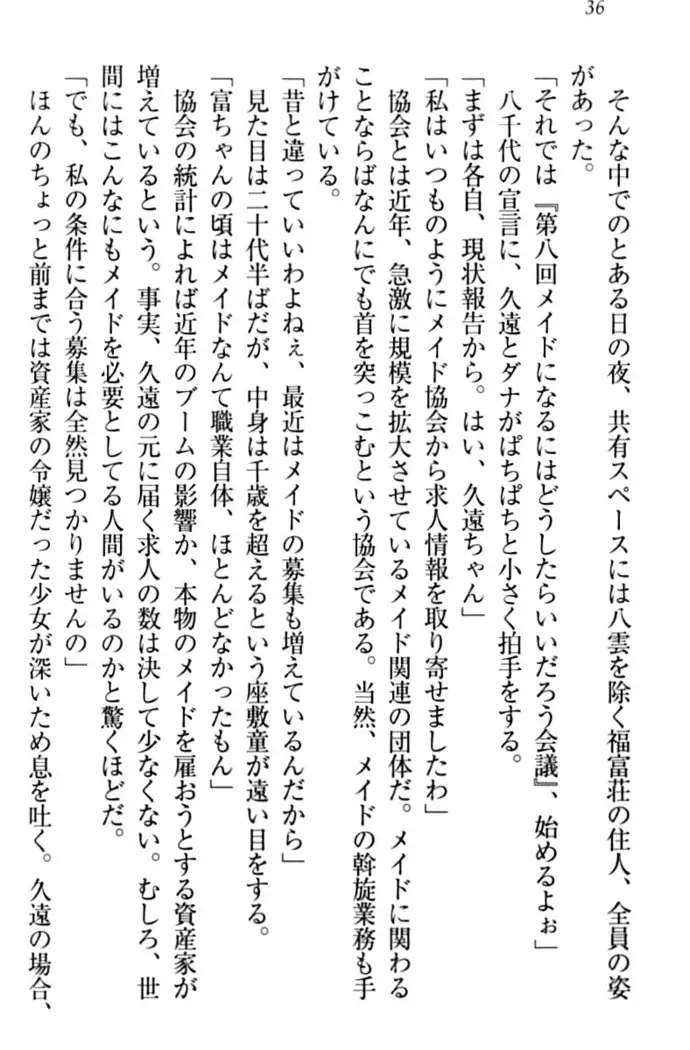 36
そんな中でのとある日の夜、共有スペースには八雲を除く福富荘の住人、全員の姿
があった。
「それでは『第八回メイドになるにはどうしたらいいだろう会議』、始めるよぉ」
八千代の宣言に、久遠とダナがぱちぱちと小さく拍手をする。
「まずは各自、現状報告から。はい、久遠ちゃん」
「私はいつものようにメイド協会から求人情報を取り寄せましたわ」
協会とは近年、急激に規模を拡大させているメイド関連の団体だ。メイドに関わる
ことならばなんにでも首を突っこむという協会である。当然、メイドの斡旋業務も手
がけている。
「昔と違っていいわよねぇ、最近はメイドの募集も増えているんだから」
見た目は二十代半ばだが、中身は千歳を超えるという座敷童が遠い目をする。
「富ちゃんの頃はメイドなんて職業自体、ほとんどなかったもん」
協会の統計によれば近年のブームの影響か、本物のメイドを雇おうとする資産家が
増えているという。事実、久遠の元に届く求人の数は決して少なくない。むしろ、世
間にはこんなにもメイドを必要としてる人間がいるのかと驚くほどだ。
「でも、私の条件に合う募集は全然見つかりませんの」
ほんのちょっと前までは資産家の令嬢だった少女が深いため息を吐く。久遠の場合、